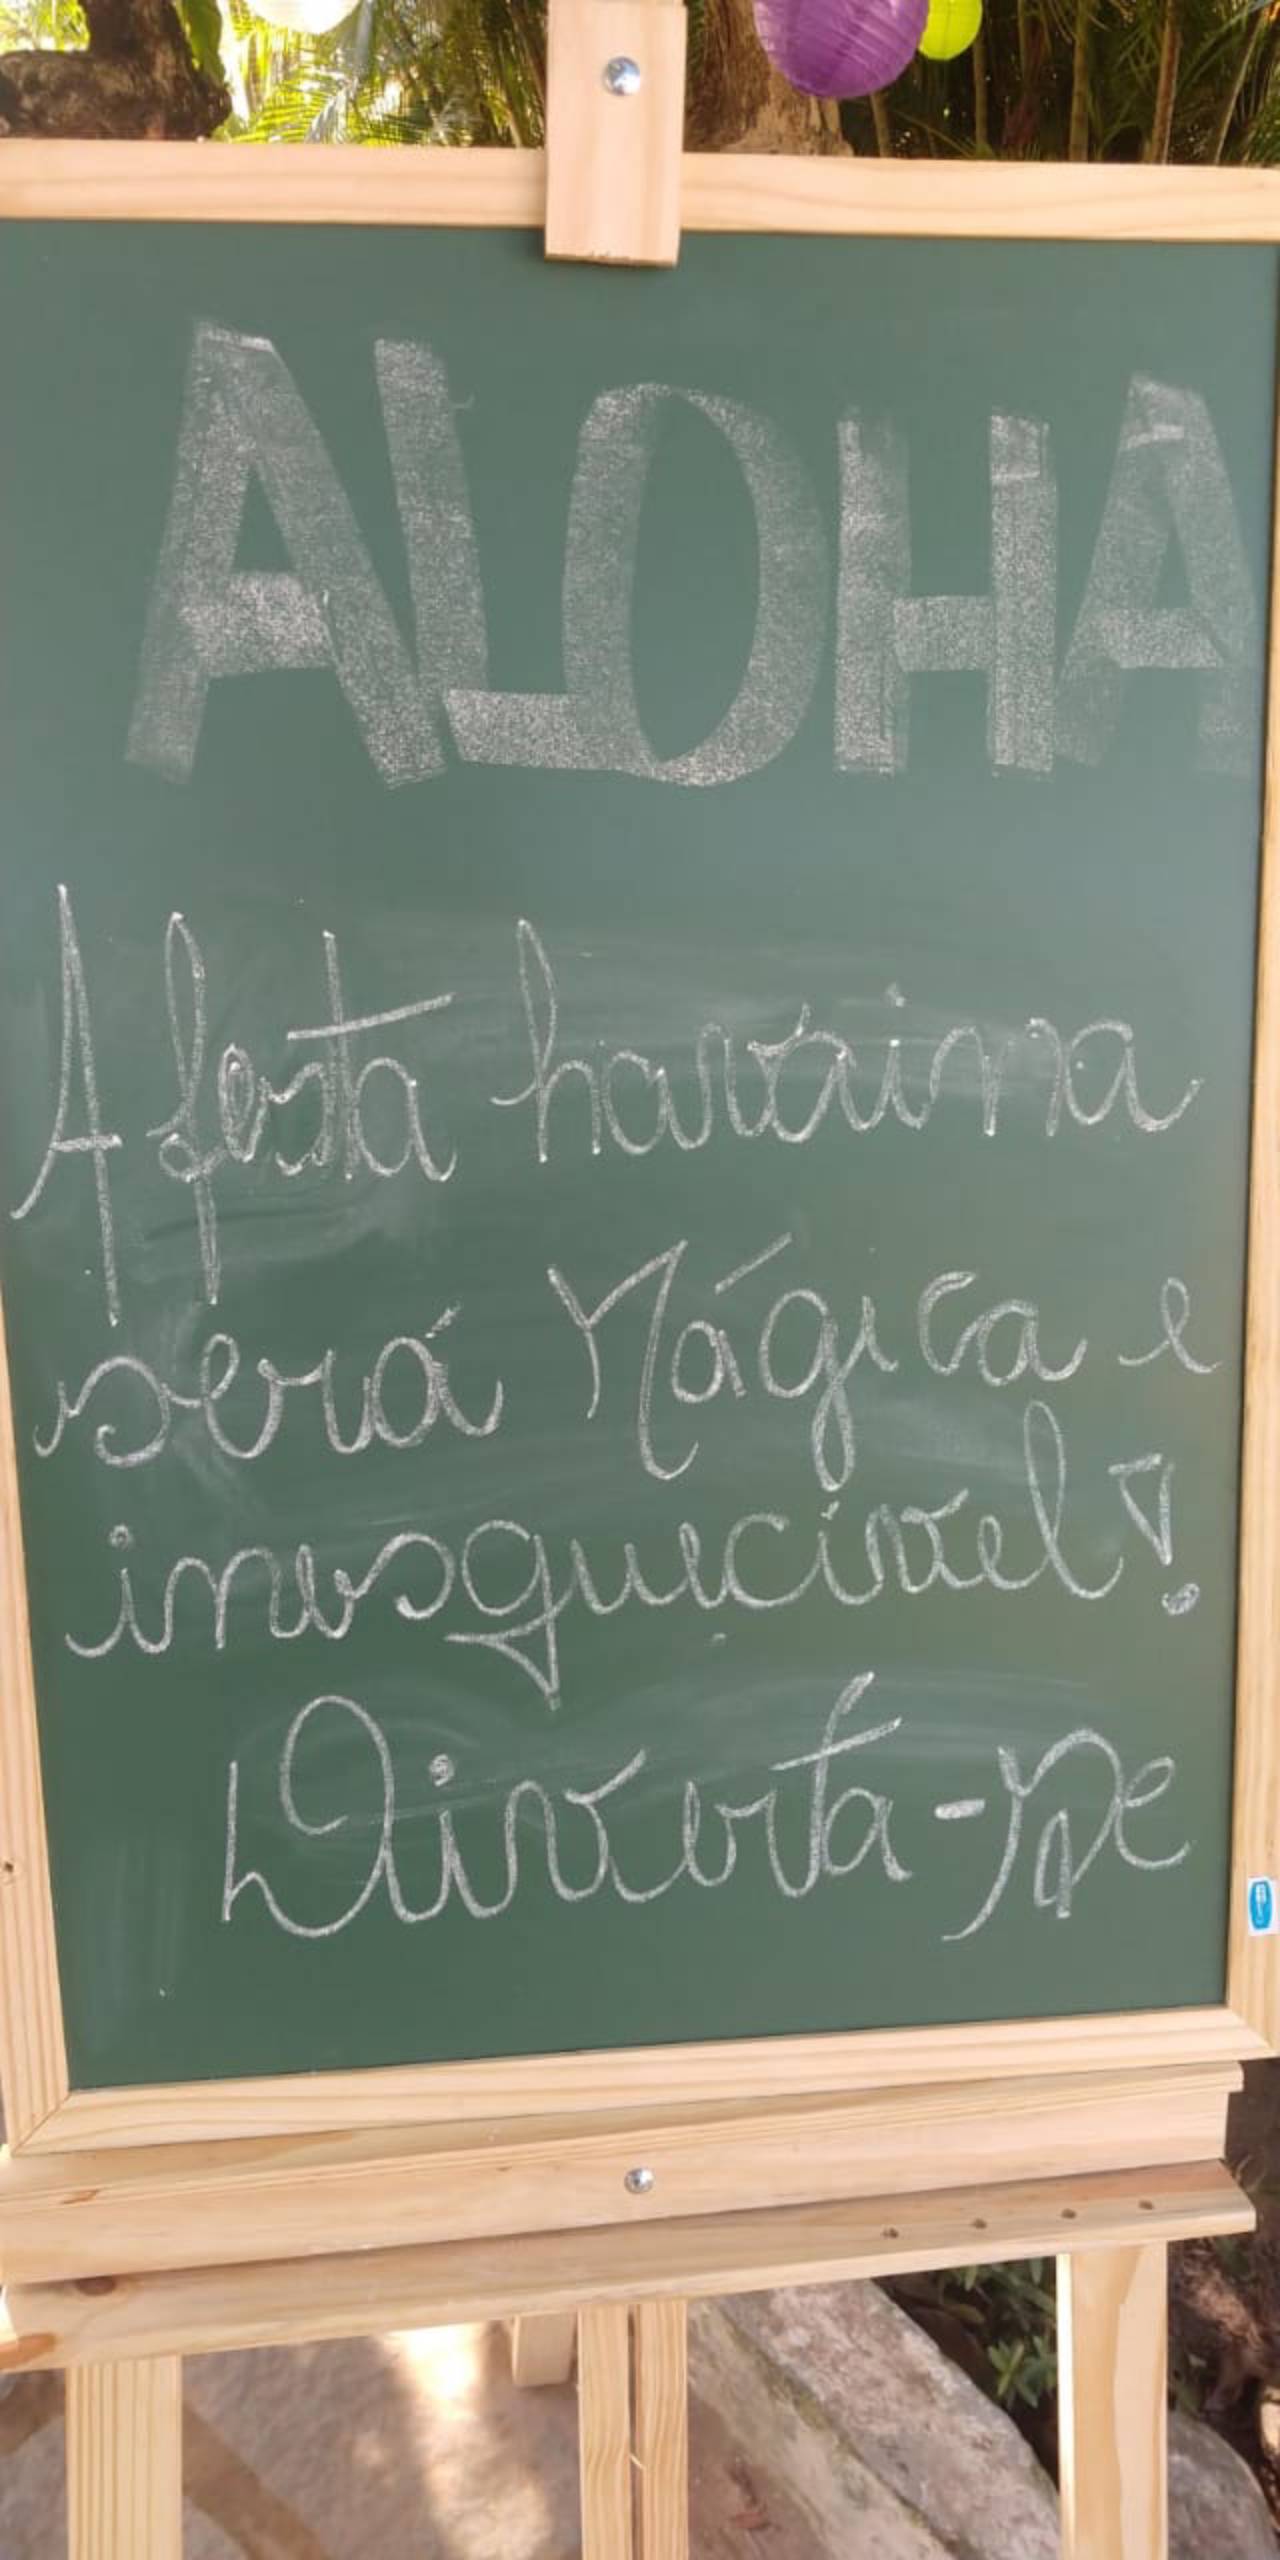 ALOHA
A festa havaina
será Mágica e
inesquecível!
Divirta-se